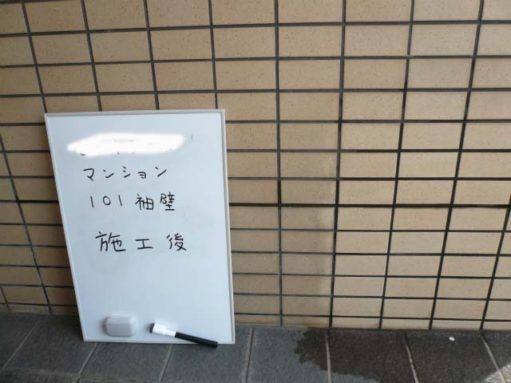 マンション
101袖壁
施工後